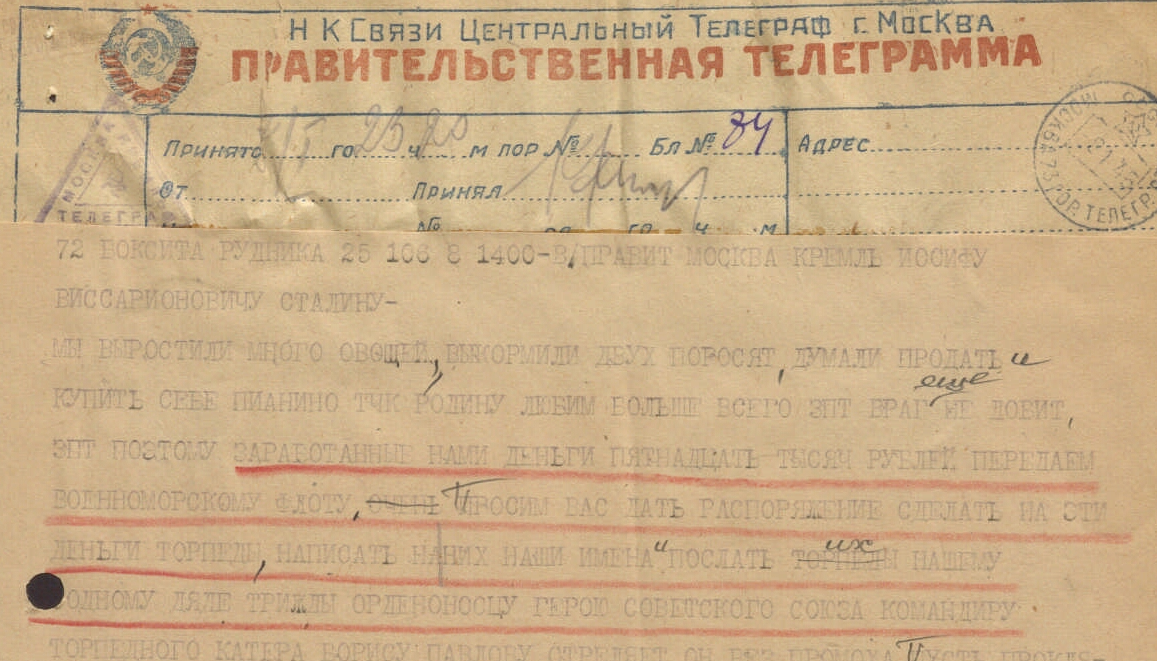 НК Связи Центральный Телеграф г. Москва
ПРАВИТЕЛЬСТВЕННАЯ ТЕЛЕГРАММА
Принято го 23 ч 20 м пор № Бл № 84 Адрес
От Принял
МОСКВА
ТЕЛЕГРАФ
МОСКВА 73 ГОР. ТЕЛЕГР.
№ го ч м
72 БОКСИТА РУДНИКА 25 106 8 1400-В/ПРАВИТ МОСКВА КРЕМЛЬ ИОСИФУ
ВИССАРИОНОВИЧУ СТАЛИНУ-
МЫ ВЫРОСТИЛИ МНОГО ОВОЩЕЙ, ВЫКОРМИЛИ ДВУХ ПОРОСЯТ, ДУМАЛИ ПРОДАТЬ и
КУПИТЬ СЕБЕ ПИАНИНО ТЧК РОДИНУ ЛЮБИМ БОЛЬШЕ ВСЕГО ЗПТ ВРАГ еще НЕ ДОБИТ,
ЗПТ ПОЭТОМУ ЗАРАБОТАННЫЕ НАМИ ДЕНЬГИ ПЯТНАДЦАТЬ ТЫСЯЧ РУБЛЕЙ ПЕРЕДАЕМ
ВОЕННОМОРСКОМУ ФЛОТУ, ОЧЕНЬ ПРОСИМ ВАС ДАТЬ РАСПОРЯЖЕНИЕ СДЕЛАТЬ НА ЭТИ
ДЕНЬГИ ТОРПЕДЫ, НАПИСАТЬ НАНИХ НАШИ ИМЕНА и ПОСЛАТЬ ТОРПЕДЫ их НАШЕМУ
РОДНОМУ ДЯДЕ ТРИЖДЫ ОРДЕНОНОСЦУ ГЕРОЮ СОВЕТСКОГО СОЮЗА КОМАНДИРУ
ТОРПЕДНОГО КАТЕРА БОРИСУ ПАВЛОВУ СТРЕЛЯЕТ ОН БЕЗ ПРОМОХА ПУСТЬ ПРОКЛЯ-